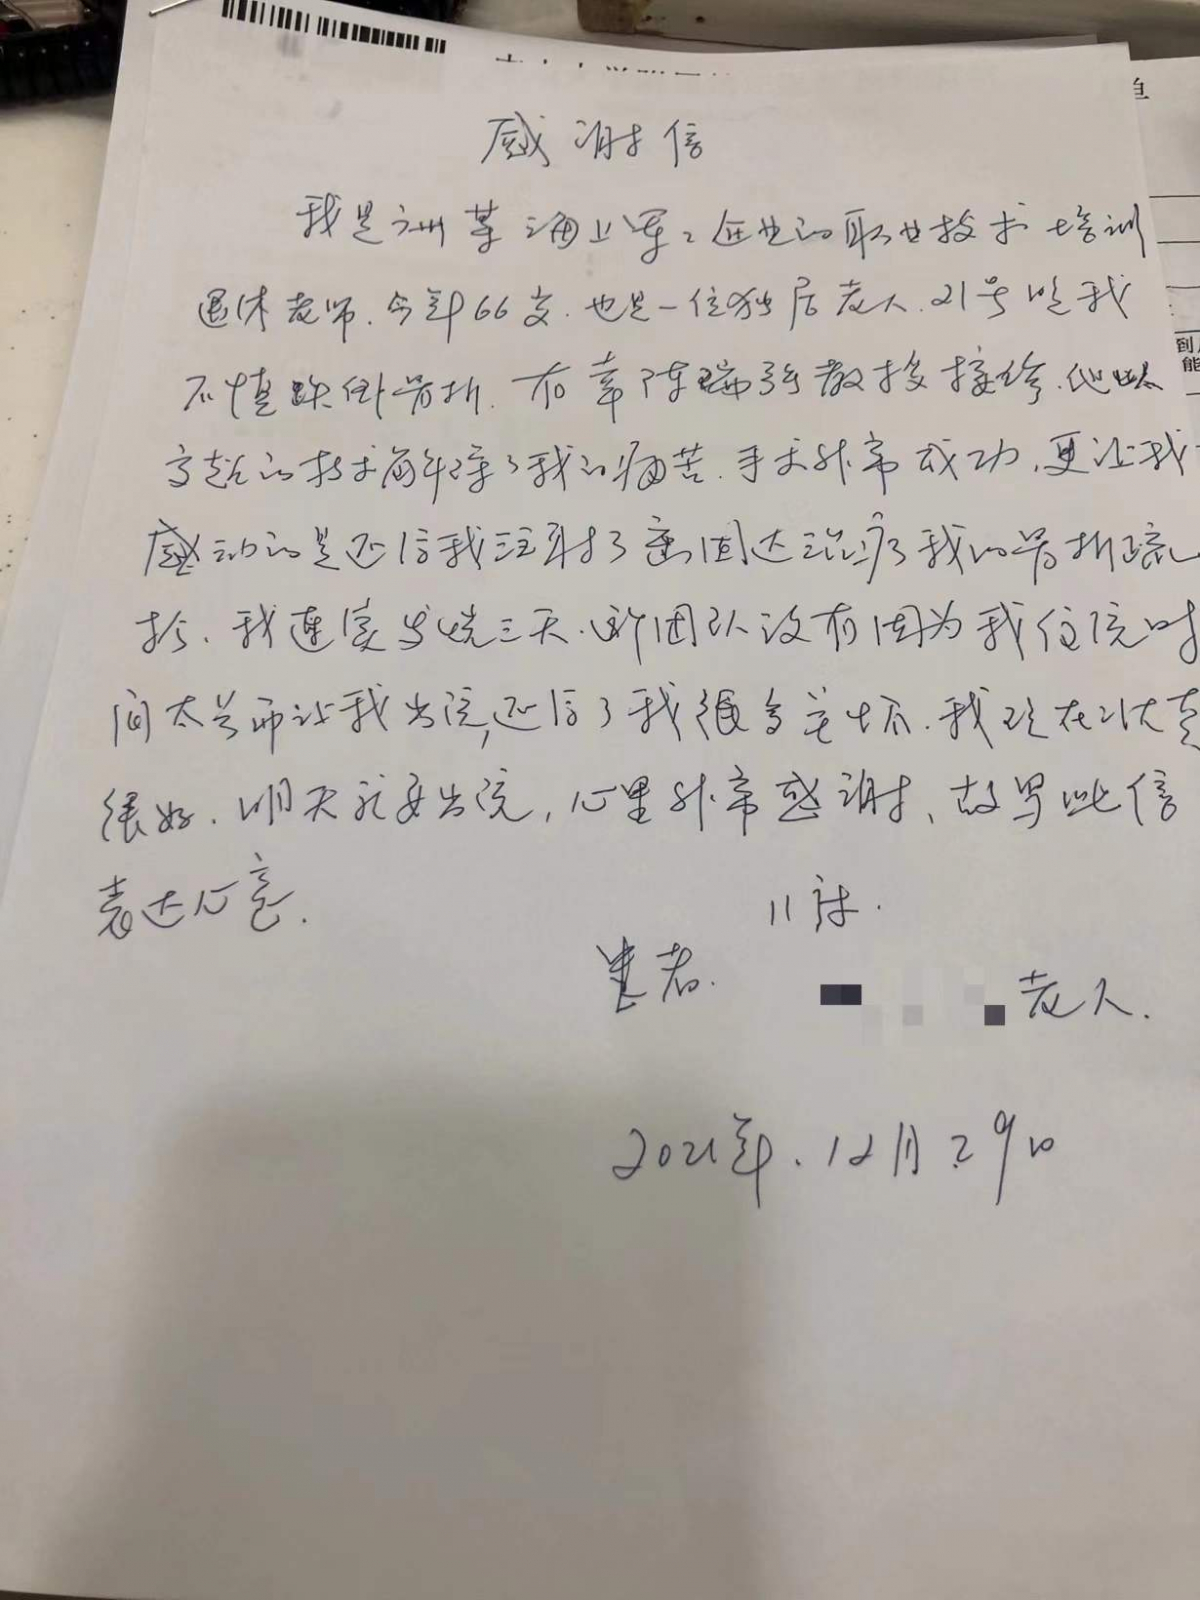 感谢信
我是广州某海上军工企业的职业技术培训
退休老师.今年66岁.也是一位独居老人.21号晚我
不慎跌倒骨折.有幸陈瑞强教授接诊.他以
高超的技术解除了我的病苦.手术非常成功,更让我
感动的是还给我注射了密固达治疗了我的骨折疏
松.我连续发烧三天. 团队没有因为我住院时
间太长而让我出院,还给了我很多关怀.我现在状态
很好.明天就要出院,心里非常感谢、故写此信
表达心意.
谢谢.
患者. 老人.
2021年.12月29日
到
能